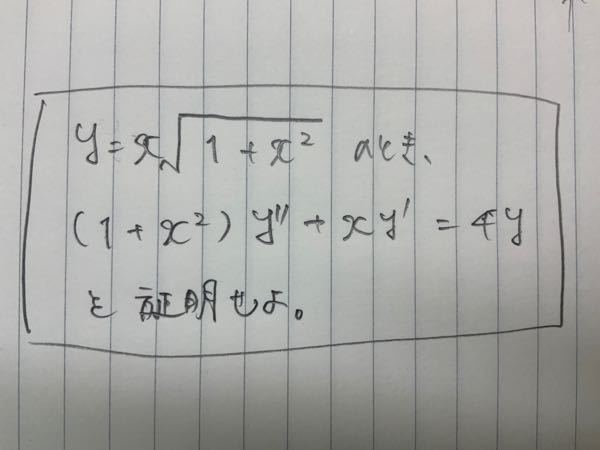 y=x√1+x² のとき、
(1+x²)y''+xy'=4y
を証明せよ。